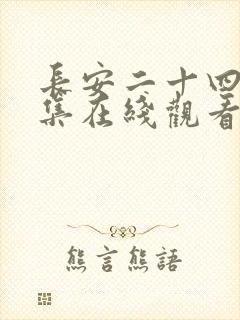 長安二十四
集在綫觀看
熊言熊語